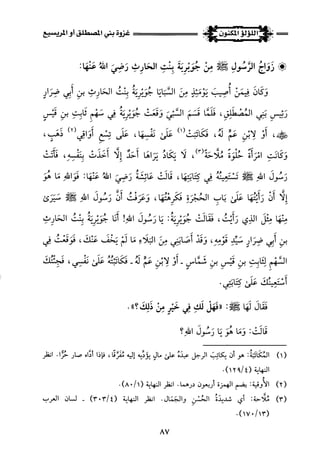 اللؤلؤ المكنون
غزوة بني المصطلق أو المريسيع
زَوَاجُ الرَّسُولِ ﷺ مِنْ جُوَيْرِيَةَ بِنْتِ الحَارِثِ رَضِيَ اللهُ عَنْهَا:
وَكَانَ فِيمَنْ أُصِيبَ يَوْمَئِذٍ مِنَ السَّبَايَا جُوَيْرِيَةُ بِنْتُ الحَارِثِ بنِ أَبِي ضِرَارٍ
رَئِيسِ بَنِي المُصْطَلِقِ، فَلَمَّا قَسَمَ السَّبْيَ وَقَعَتْ جُوَيْرِيَةُ فِي سَهْمِ ثَابِتِ بنِ قَيْسٍ
، أَوْ لِابْنِ عَمٍّ لَهُ، فَكَاتَبَتْ(١) عَلَى نَفْسِهَا، عَلَى تِسْعِ أَوَاقِي(٢) ذَهَبٍ،
وَكَانَتِ امْرَأَةً حُلْوَةً مُلَّاحَةً(٣)، لَا يَكَادُ يَرَاهَا أَحَدٌ إِلَّا أَخَذَتْ بِنَفْسِهِ، فَأَتَتْ
رَسُولَ اللهِ ﷺ تَسْتَعِينُهُ فِي كِتَابَتِهَا، قَالَتْ عَائِشَةُ رَضِيَ اللهُ عَنْهَا: فَوَاللهِ مَا هُوَ
إِلَّا أَنْ رَأَيْتُهَا عَلَى بَابِ الحُجْرَةِ فَكَرِهْتُهَا، وَعَرَفْتُ أَنَّ رَسُولَ اللهِ ﷺ سَيَرَى
مِنْهَا مِثْلَ الذِي رَأَيْتُ، فَقَالَتْ جُوَيْرِيَةُ: يَا رَسُولَ اللهِ! أَنَا جُوَيْرِيَةُ بِنْتُ الحَارِثِ
بنِ أَبِي ضِرَارٍ سَيِّدِ قَوْمِهِ، وَقَدْ أَصَابَنِي مِنَ البَلَاءِ مَا لَمْ يَخْفَ عَنْكَ، فَوَقَعْتُ فِي
السَّهْمِ لِثَابِتِ بنِ قَيْسِ بنِ شَمَّاسٍ - أَوْ لِابْنِ عَمٍّ لَهُ - فَكَاتَبْتُهُ عَلَى نَفْسِي، فَجِئْتُكَ
أَسْتَعِينُكَ عَلَى كِتَابَتِي.
فَقَالَ لَهَا ﷺ: «فَهَلْ لَكِ فِي خَيْرٍ مِنْ ذَلِكَ؟».
قَالَتْ: وَمَا هُوَ يَا رَسُولَ اللهِ؟
(١) المُكَاتَبَةُ: هو أن يكاتِبَ الرجل عبدَهُ على مالٍ يؤدِّيه إليه مُفَرَّقًا، فإذا أدَّاه صار حُرًّا. انظر
النهاية (١٢٩/٤).
(٢) الأوقية: بضم الهمزة أربعون درهما. انظر النهاية (٨٠/١).
(٣) مُلَّاحة: أي شديدةُ الحُسْنِ والجَمَال. انظر النهاية (٣٠٣/٤) - لسان العرب
(١٧٠/١٣).
٨٧